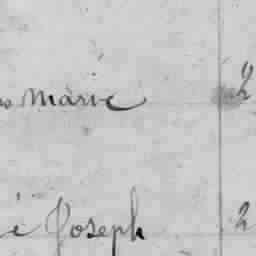 Marie 2
Joseph 2